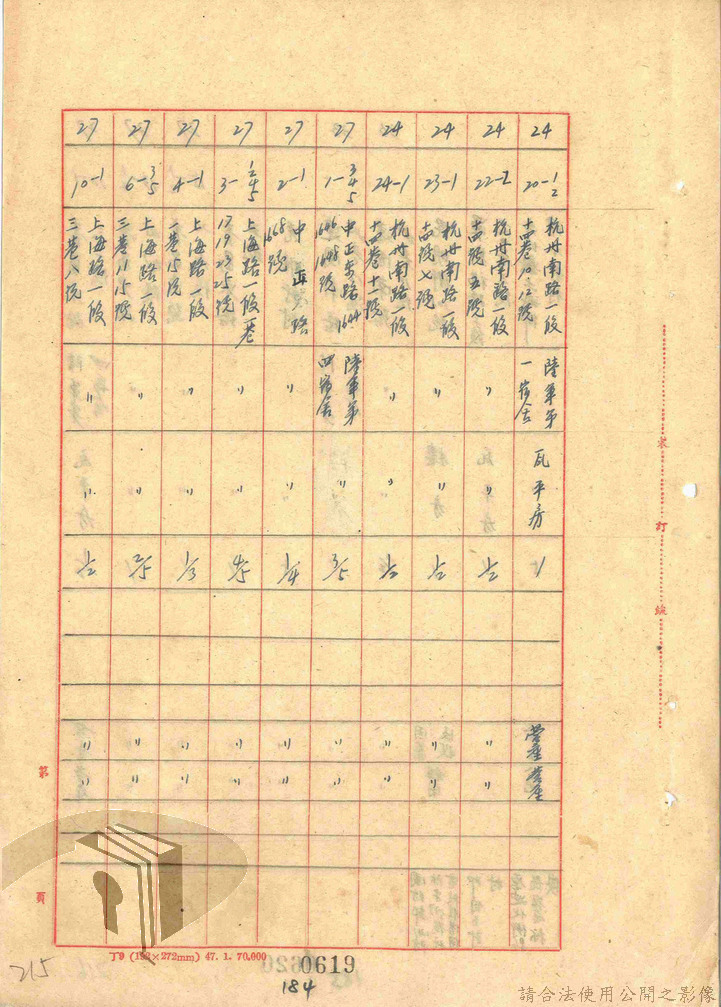 24
20-1/2
杭州南路一段
十四巷10.12號
陸軍第
一宿舍
瓦平房
1
營產
營產
24
22-2
杭州南路一段
十四號五號
〃
〃
1/2
〃
〃
24
23-1
杭州南路一段
十四號七號
〃
〃
1/2
〃
〃
24
24-1
杭州南路一段
十四巷十一號
〃
〃
1/2
〃
〃
27
1-3/4/5
中正東路1644
1646
1648號
陸軍第
四宿舍
〃
3/5
〃
〃
27
2-1
中正路
1668號
〃
〃
1/4
〃
〃
27
3-1/2/4/5
上海路一段一巷
17 19 23 25號
〃
〃
4/5
〃
〃
27
4-1
上海路一段
一巷15號
〃
〃
1/3
〃
〃
27
6-3/5
上海路一段
三巷11.15號
〃
〃
2/5
〃
〃
27
10-1
上海路一段
三巷八號
〃
〃
1/2
〃
〃
訂
線
第
頁
丁9 (192×272mm) 47. 1. 70,000
0619
184
215
請合法使用公開之影像